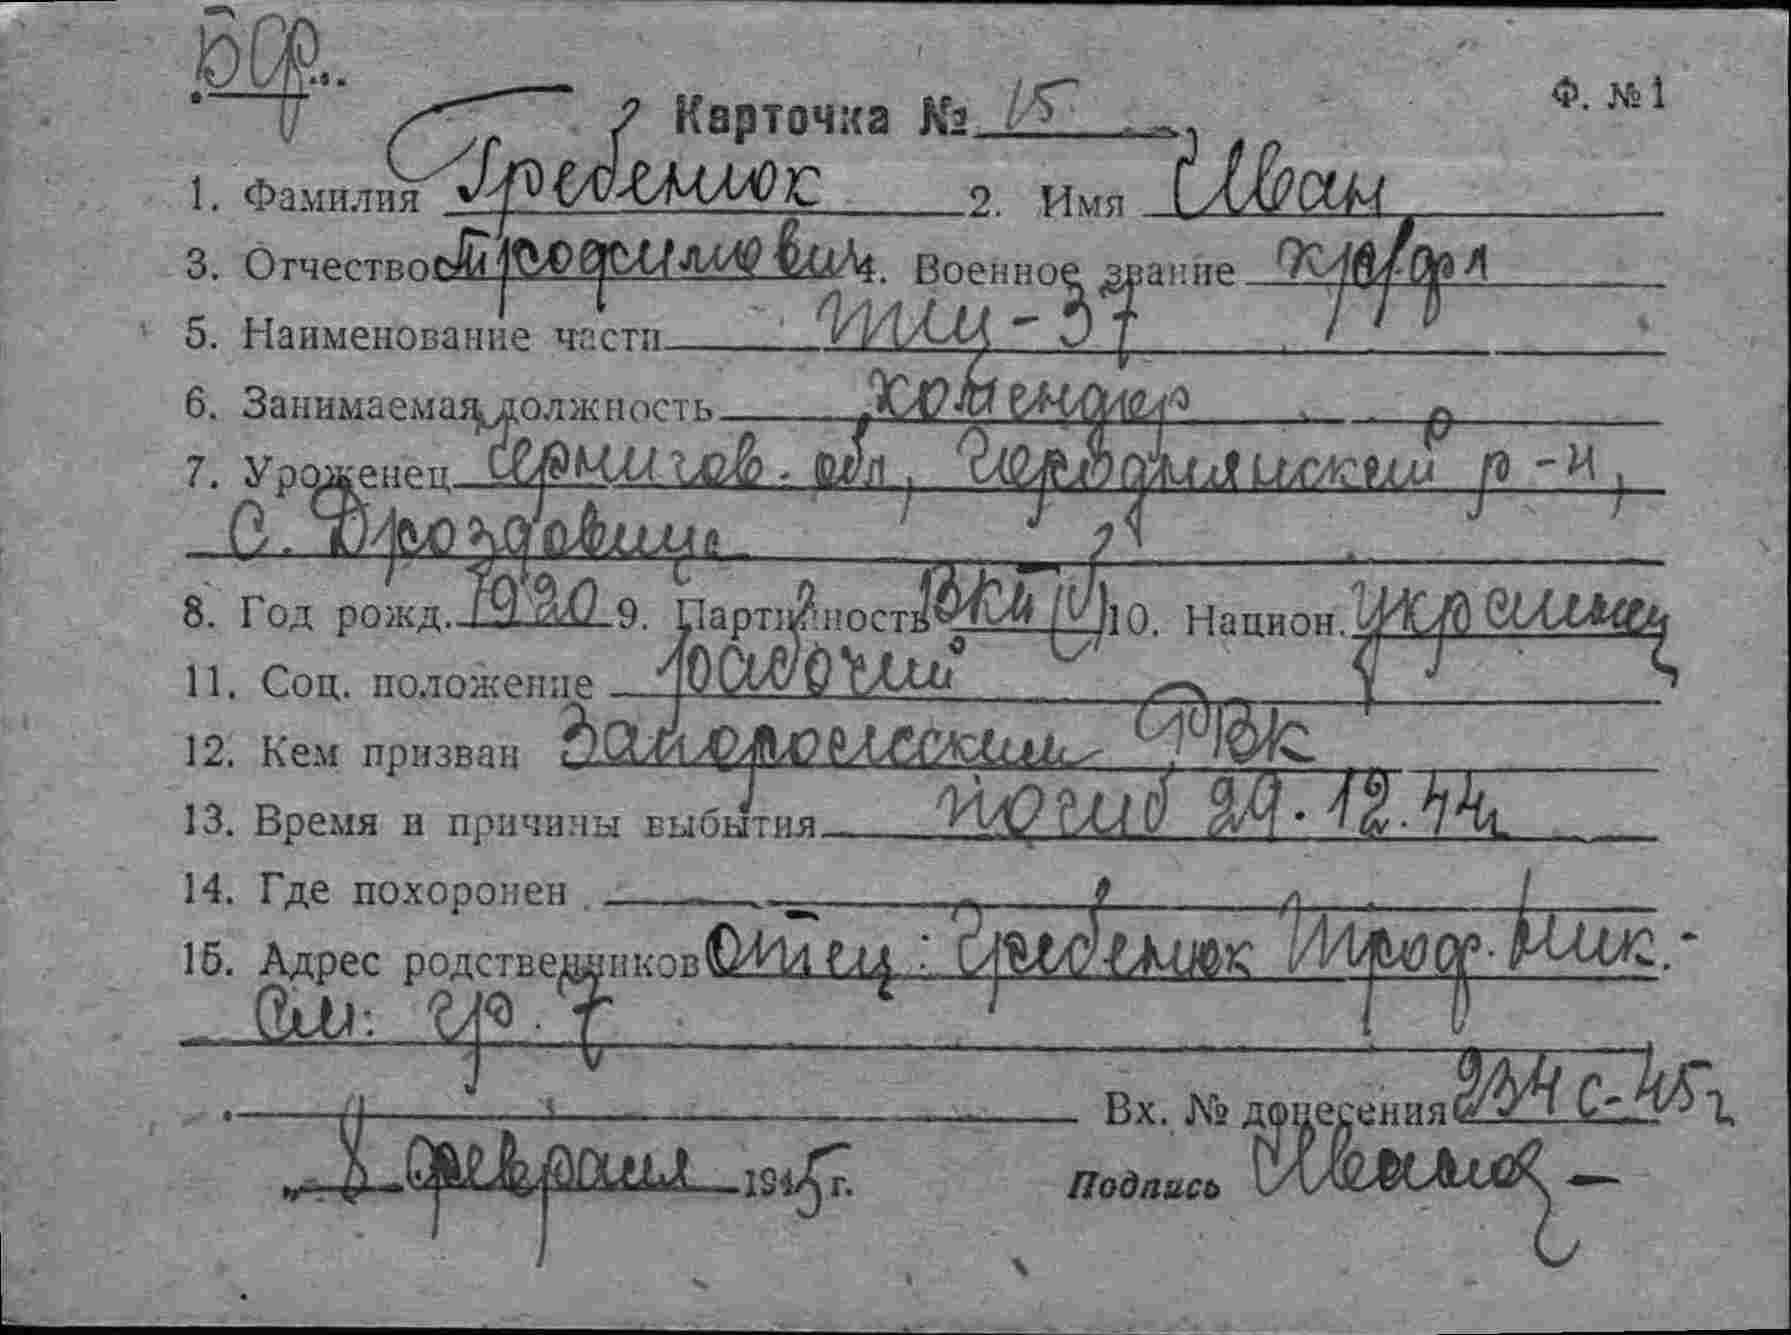 БФ...
Ф. № 1
Карточка № 15
1. Фамилия Гребенюк 2. Имя Иван
3. Отчество Трофимович 4. Военное звание кр/фл
5. Наименование части ТЩ-37
6. Занимаемая должность комендор
7. Уроженец Чернигов. обл, Городнянский р-н,
с. Дроздовица
8. Год рожд. 1920 9. Партийность ВКП(б) 10. Национ. украинец
11. Соц. положение рабочий
12. Кем призван Запорожским РВК
13. Время и причины выбытия погиб 29.12.44г
14. Где похоронен
15. Адрес родственников Отец: Гребенюк Троф. Ник.-
См: гр. 7
Вх. № донесения 234с-45г
„8 февраля 1945 г. Подпись